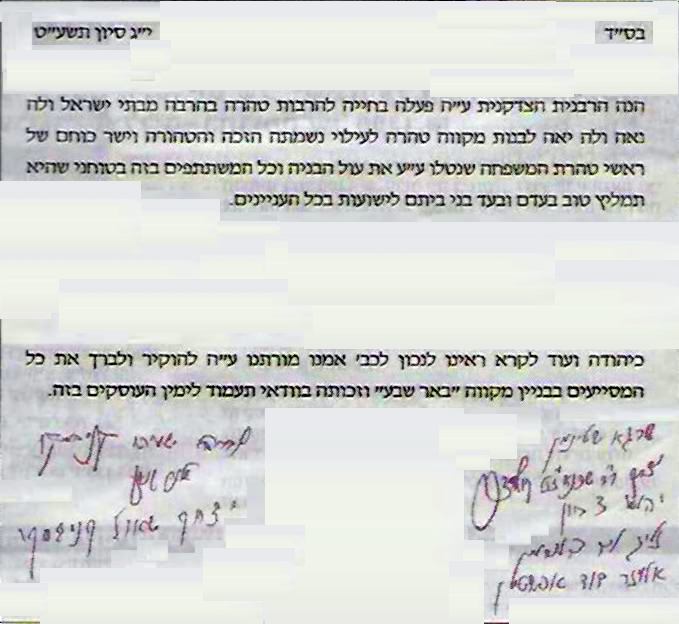 בס״ד
י״ג סיון תשע״ט
הנה הרבנית הצדקנית ע״ה פעלה בחייה להרבות טהרה בהרבה מבתי ישראל ולה
נאה ולה יאה לבנות מקווה טהרה לעילוי נשמתה הזכה והטהורה וישר כוחם של
ראשי טהרת המשפחה שנטלו ע״ע את עול הבניה וכל המשתתפים בזה בטוחני שהיא
תמליץ טוב בעדם ובעד בני ביתם לישועות בכל העניינים.
כיהודה ועוד לקרא ראינו לנכון לכב׳ אמנו מורתנו ע״ה להוקיר ולברך את כל
המסייעים בבניין מקווה ״באר שבע״ וזכותה בוודאי תעמוד לימין העוסקים בזה.
שרגא שטינמן
אברהם ישעיהו קנייבסקי
יצחק
יצחק שאול קנייבסקי
אליעזר דוד